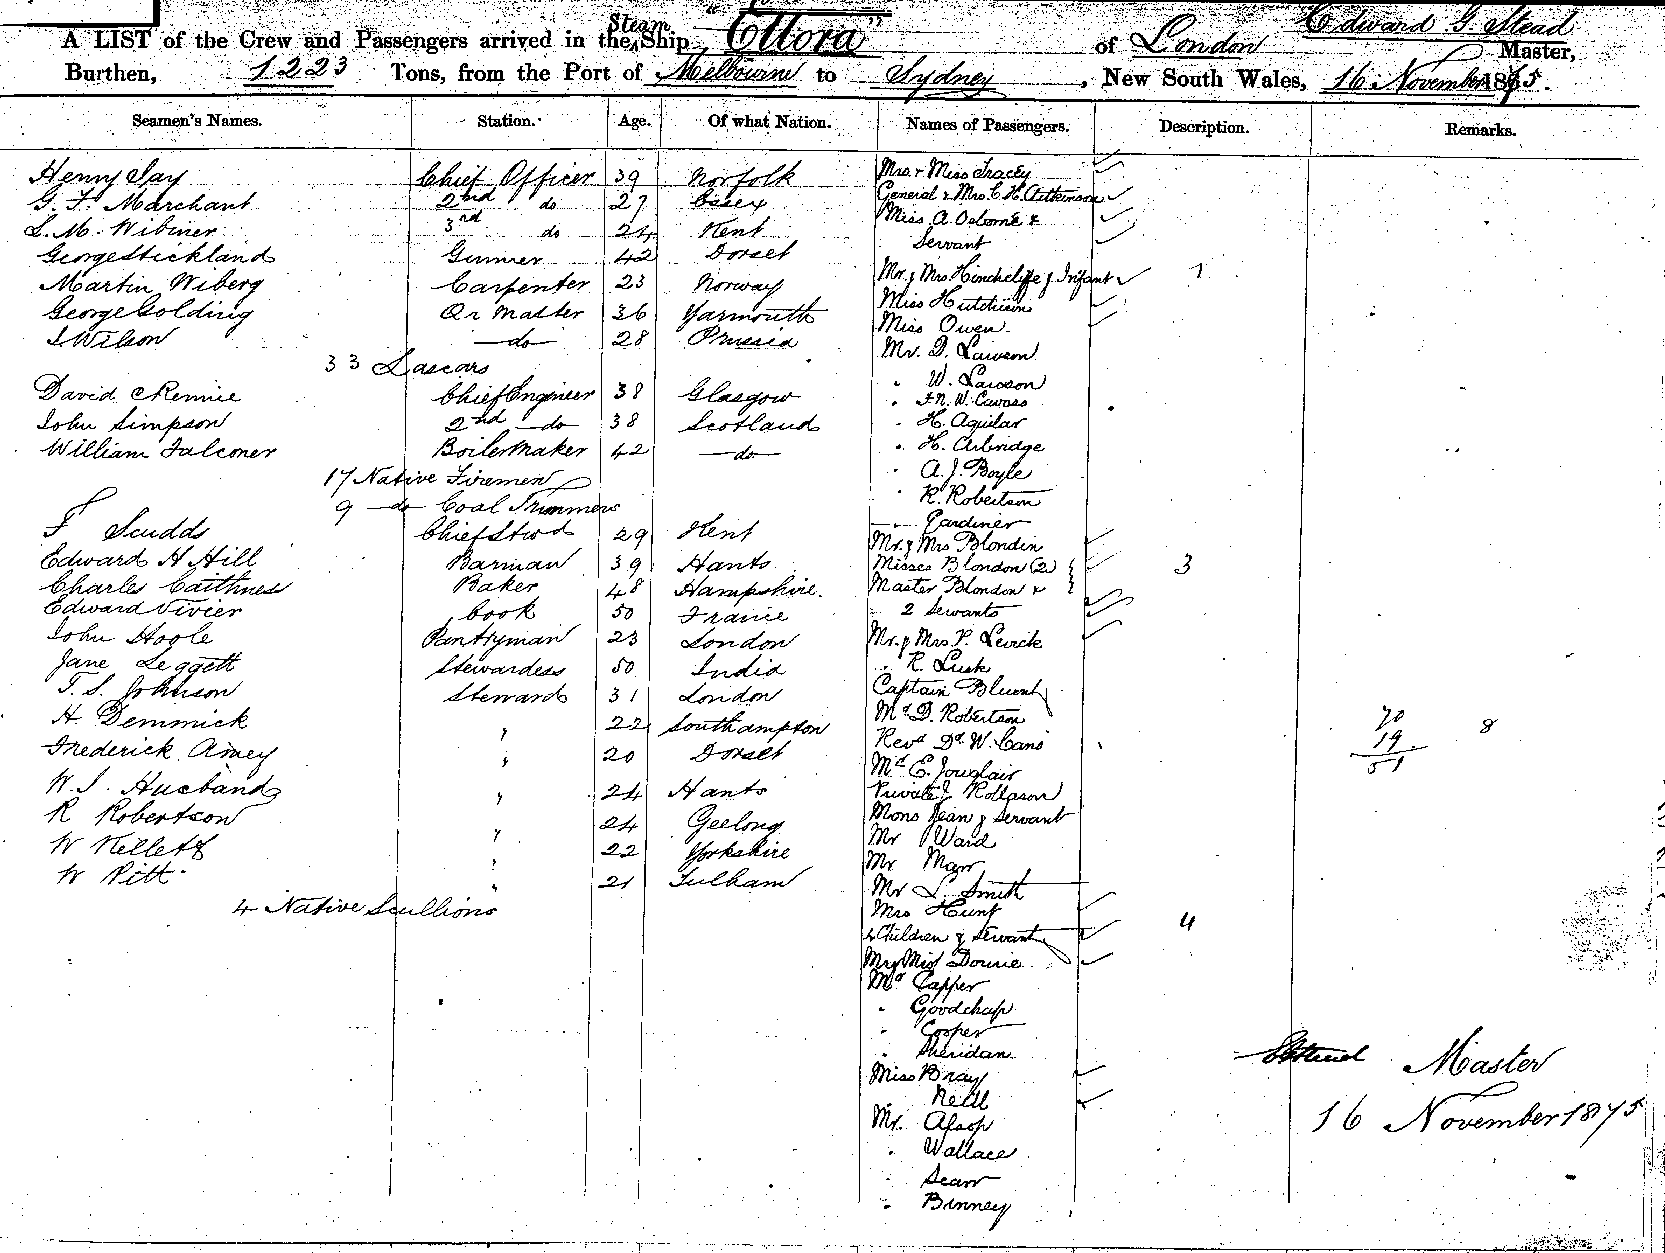 A LIST of the Crew and Passengers arrived in the Steam Ship "Ellora" of London Edward G. Stead Master,
Burthen, 1223 Tons, from the Port of Melbourne to Sydney, New South Wales, 16 November 1875.
Seamen's Names. Station. Age. Of what Nation. Names of Passengers. Description. Remarks.
Henry Say Chief Officer 39 Norfolk Mrs & Miss Tracey
G. F. Marchant 2nd do 27 Essex General & Mrs. C. H. Aitkinson
S. M. Wibmer 3rd do 24 Kent Miss A. Osborne &
Servant
George Stickland Gunner 42 Dorset
Martin Wiberg Carpenter 23 Norway Mr. & Mrs. Hinchcliffe & Infant 1
George Golding Qr Master 36 Yarmouth Miss Hutchison
J Wilson do 28 Prussia Miss Owen
33 Lascars Mr. D. Lawson
" W. Lawson
David Rennie Chief Engineer 38 Glasgow
John Simpson 2nd do 38 Scotland " H. Aguilar
William Falconer Boiler Maker 42 do " H. Arbridge
17 Native Firemen " A. J. Boyle
9 do Coal Trimmers " R. Robertson
F Scudds Chief Stwd 29 Kent Gardiner
Edward H Hill Barman 39 Hants Mr. & Mrs Blondin
Charles Caithness Baker 48 Hampshire. Misses Blondon (2) 3
Master Blondon &
Edward Vivier Cook 50 France 2 Servants
John Hoole Pantryman 23 London Mr. & Mrs. P. Levick
Jane Leggett Stewardess 50 India " R. Lusk
T. S. Johnson Steward 31 London Captain Bluent
H. Demmick " 22 Southampton Mr D. Robertson
Frederick Amey " 20 Dorset Revd Dr. W. Cani
Mr E. Jouglair
70
19 8
51
W. J. Husband " 24 Hants Private J Rollpson
R Robertson " 24 Geelong Mons Jean & Servant
W Kellett " 22 Yorkshire Mr Ward
Mr Marr
W Pitt " 21 Fulham Mr L. Smith
4 Native Scullions Mrs Hunt
4 Children & Servant 4
Mr & Miss Downie
Mr Capper
" Goodchap
" Cooper
" Sheridan
Miss Bray
" Neill
Mr. Alsop
" Wallace
" Searr
" Binney
EGStead Master
16 November 1875